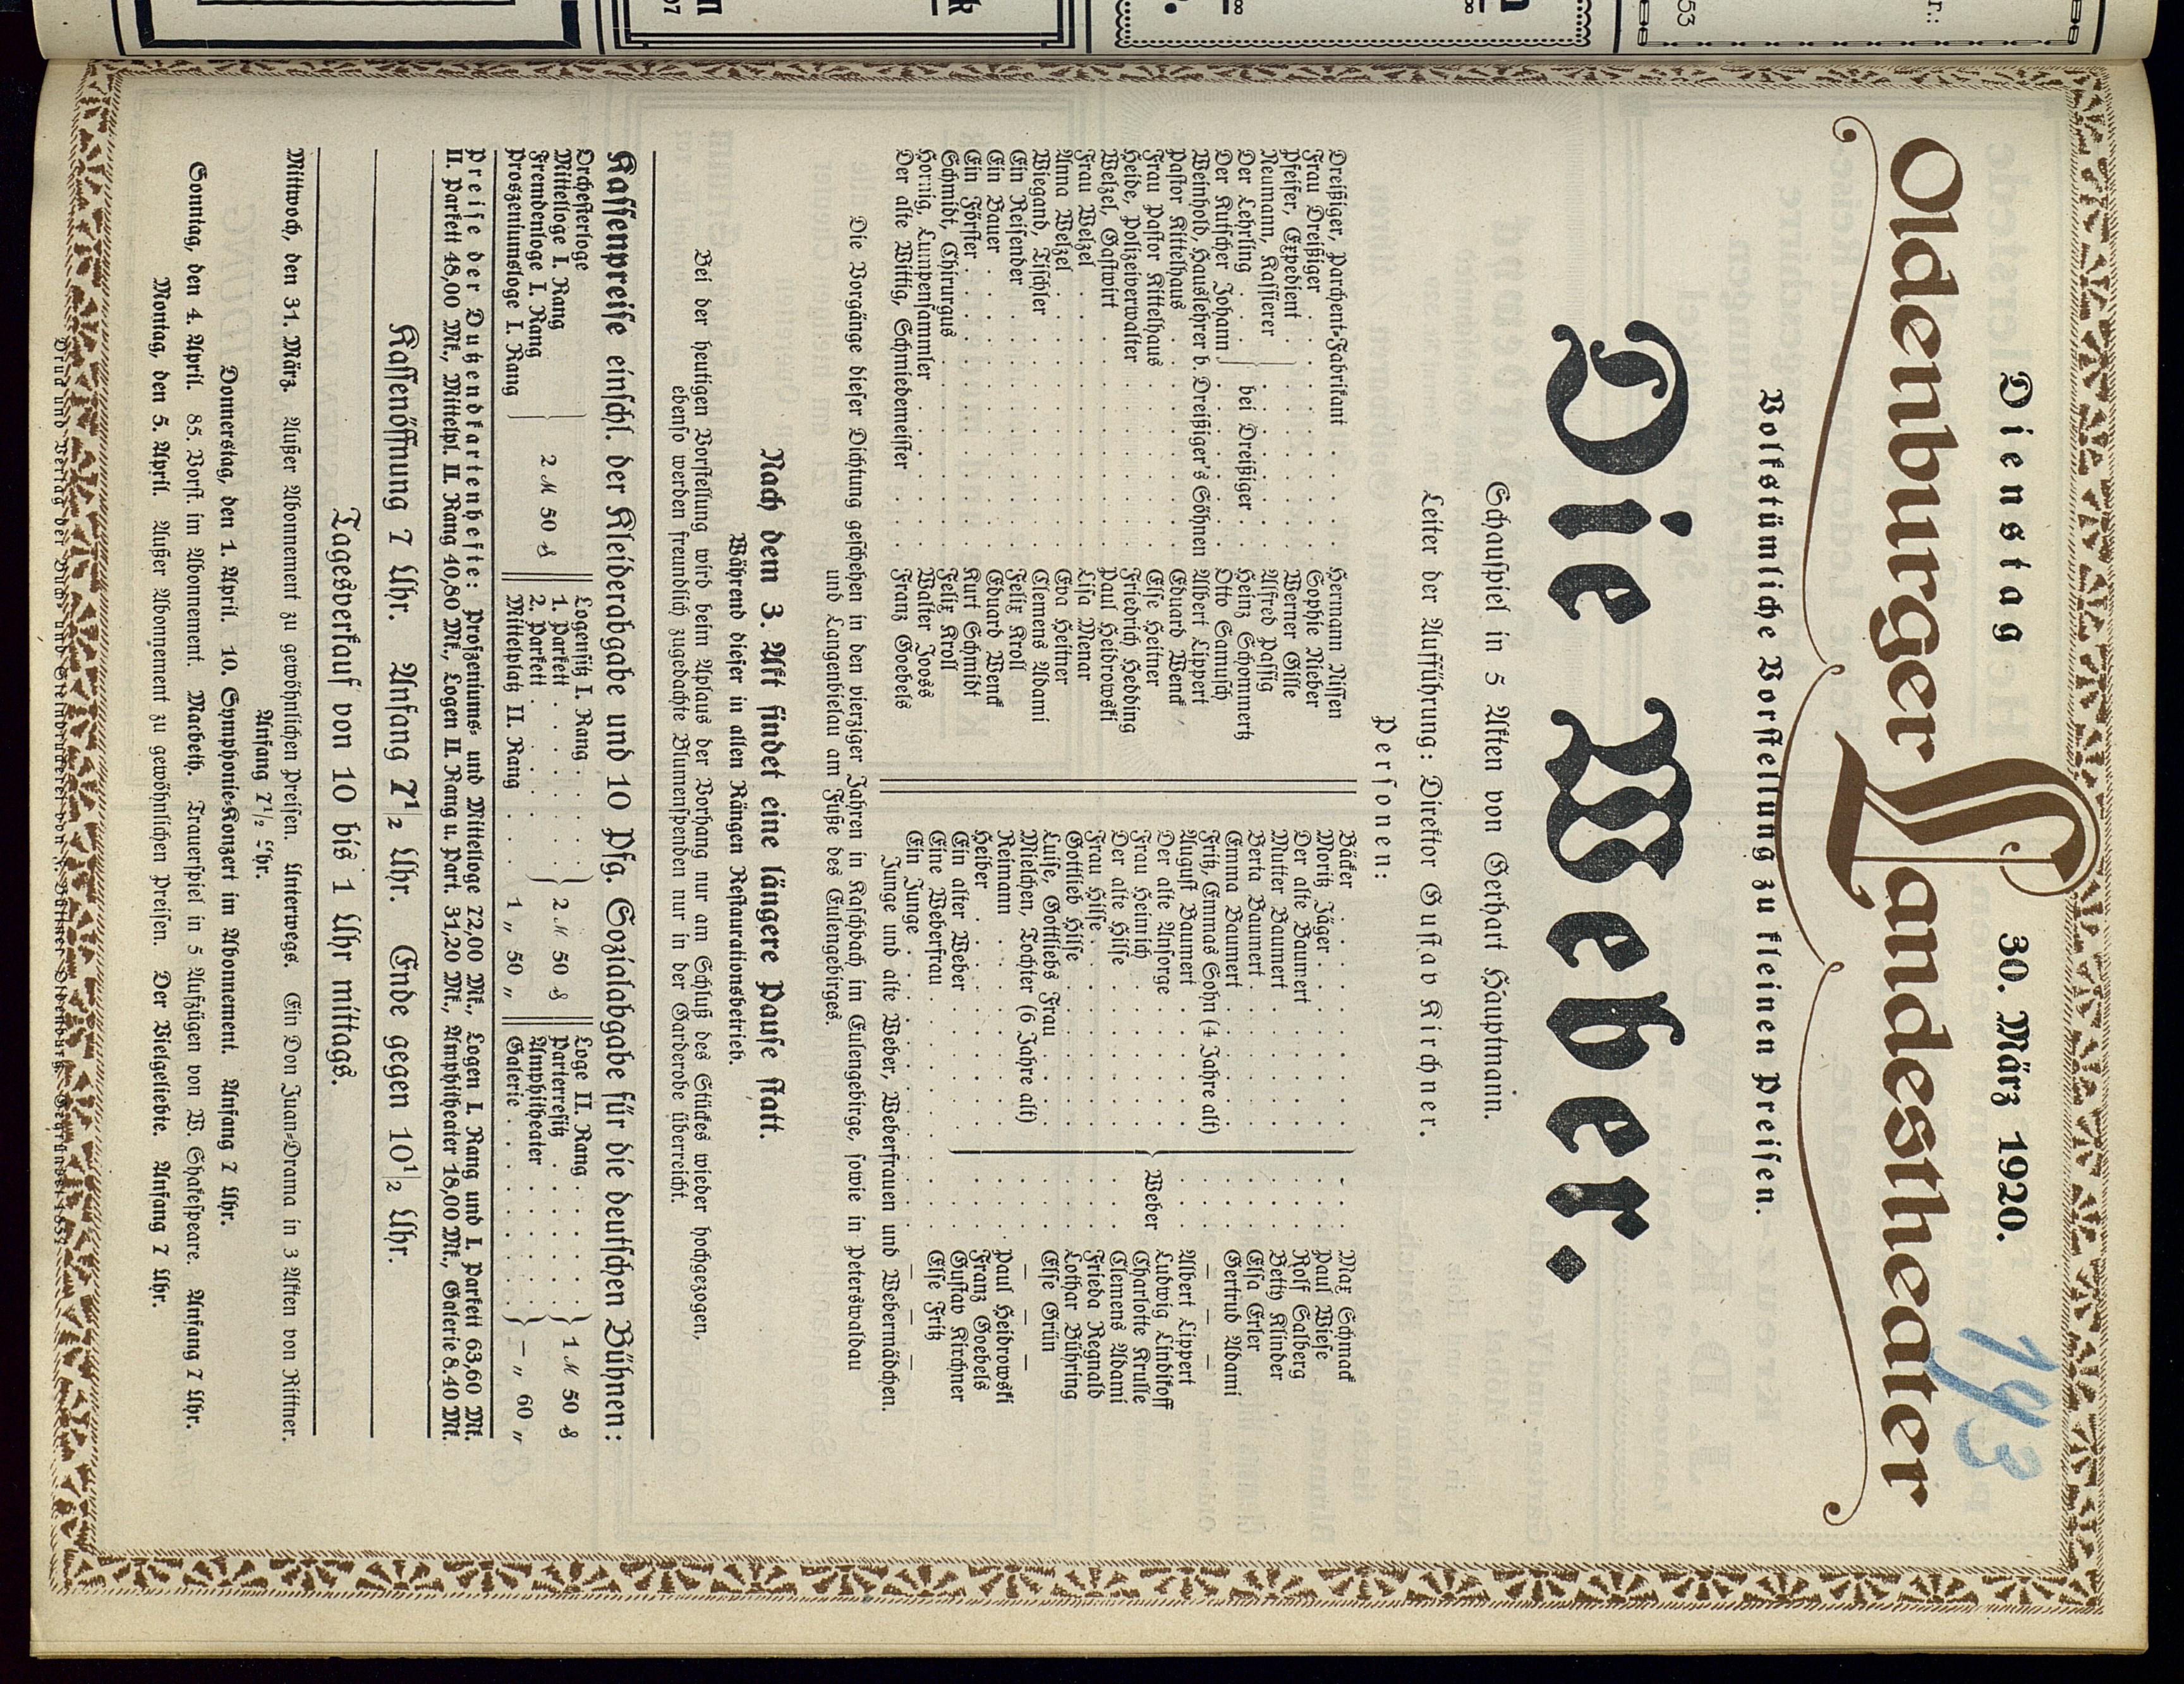 Dienstag 30. März 1920.
143
Oldenburger Landestheater
Volkstümliche Vorstellung zu kleinen Preisen.
Die Weber.
Schauspiel in 5 Akten von Gerhart Hauptmann.
Leiter der Aufführung: Direktor Gustav Kirchner.
Personen:
Dreißiger, Parchent-Fabrikant . . . . . Hermann Nissen
Frau Dreißiger . . . . . Sophie Rieber
Pfeifer, Expedient . . . . . Werner Gille
Neumann, Kassierer . . . . . Alfred Passig
Der Lehrling . . . bei Dreißiger . . Heinz Schommertz
Der Kutscher Johann . . . . . Otto Samusch
Weinhold, Hauslehrer b. Dreißiger's Söhnen Albert Lippert
Pastor Kittelhaus . . . . . Eduard Wenck
Frau Pastor Kittelhaus . . . . . Else Heitner
Heide, Polizeiverwalter . . . . . Friedrich Hedding
Welzel, Gastwirt . . . . . Paul Heidrowski
Frau Welzel . . . . . Lisa Menar
Anna Welzel . . . . . Eva Heitner
Wiegand, Tischler . . . . . Clemens Adami
Ein Reisender . . . . . Felix Kroll
Ein Bauer . . . . . Eduard Wenck
Ein Förster . . . . . Kurt Schmidt
Schmidt, Chirurgus . . . . . Felix Kroll
Hornig, Lumpensammler . . . . . Walter Jooss
Der alte Wittig, Schmiedemeister . . . . Franz Goebels
Bäcker . . . . . Max Schmack
Moritz Jäger . . . . . Paul Wiese
Der alte Baumert . . . . . Rolf Salberg
Mutter Baumert . . . . . Betty Klinder
Berta Baumert . . . . . Elsa Erler
Emma Baumert . . . . . Gertrud Adami
Fritz, Emmas Sohn (4 Jahre alt) — — —
August Baumert . . . . . Albert Lippert
Der alte Ansorge . . . . . Ludwig Lindikoff
Frau Heinrich . . . . . Charlotte Krulle
Der alte Hilse . . . Weber . . Clemens Adami
Frau Hilse . . . . . Frieda Regnald
Gottlieb Hilse . . . . . Lothar Bühring
Luise, Gottliebs Frau . . . . . Else Grün
Mielchen, Tochter (6 Jahre alt) — — —
Reimann . . . . . Paul Heidrowski
Heiber . . . . . Franz Goebels
Ein alter Weber . . . . . Gustav Kirchner
Eine Weberfrau . . . . . Else Fritz
Ein Junge . . . . . — — —
Junge und alte Weber, Weberfrauen und Webermädchen.
Die Vorgänge dieser Dichtung geschehen in den vierziger Jahren in Kaschbach im Eulengebirge, sowie in Peterswaldau
und Langenbielau am Fuße des Eulengebirges.
Nach dem 3. Akt findet eine längere Pause statt.
Während dieser in allen Rängen Restaurationsbetrieb.
Bei der heutigen Vorstellung wird beim Aplaus der Vorhang nur am Schluß des Stückes wieder hochgezogen,
ebenso werden freundlich zugedachte Blumenspenden nur in der Garderobe überreicht.
Kassenpreise einschl. der Kleiderabgabe und 10 Pfg. Sozialabgabe für die deutschen Bühnen:
Orchesterloge
Mittelloge I. Rang
Fremdenloge I. Rang
Proszeniumsloge I. Rang
2 M 50 ₰
Logensitz I. Rang . . . .
1. Parkett . . . . .
2. Parkett . . . . .
2 M 50 ₰
Mittelplatz II. Rang . . . . 1 „ 50 „
Loge II. Rang . . . . .
Parterresitz . . . . .
1 M 50 ₰
Amphitheater . . . . .
Galerie . . . . .
— „ 60 „
Preise der Dutzendkartenhefte: Proszeniums- und Mittelloge 72,00 Mk., Logen I. Rang und I. Parkett 63,60 Mk.
II. Parkett 48,00 Mk., Mittelpl. II. Rang 40,80 Mk., Logen II. Rang u. Part. 31,20 Mk., Amphitheater 18,00 Mk., Galerie 8.40 Mk.
Kassenöffnung 7 Uhr. Anfang 7 1/2 Uhr. Ende gegen 10 1/2 Uhr.
Tagesverkauf von 10 bis 1 Uhr mittags.
Mittwoch, den 31. März. Außer Abonnement zu gewöhnlichen Preisen. Unterwegs. Ein Don Juan-Drama in 3 Akten von Rittner.
Anfang 7 1/2 Uhr.
Donnerstag, den 1. April. 10. Symphonie-Konzert im Abonnement. Anfang 7 Uhr.
Sonntag, den 4. April. 85. Vorst. im Abonnement. Macbeth. Trauerspiel in 5 Aufzügen von W. Shakespeare. Anfang 7 Uhr.
Montag, den 5. April. Außer Abonnement zu gewöhnlichen Preisen. Der Vielgeliebte. Anfang 7 Uhr.
Druck und Verlag der Buch- und Steindruckerei von